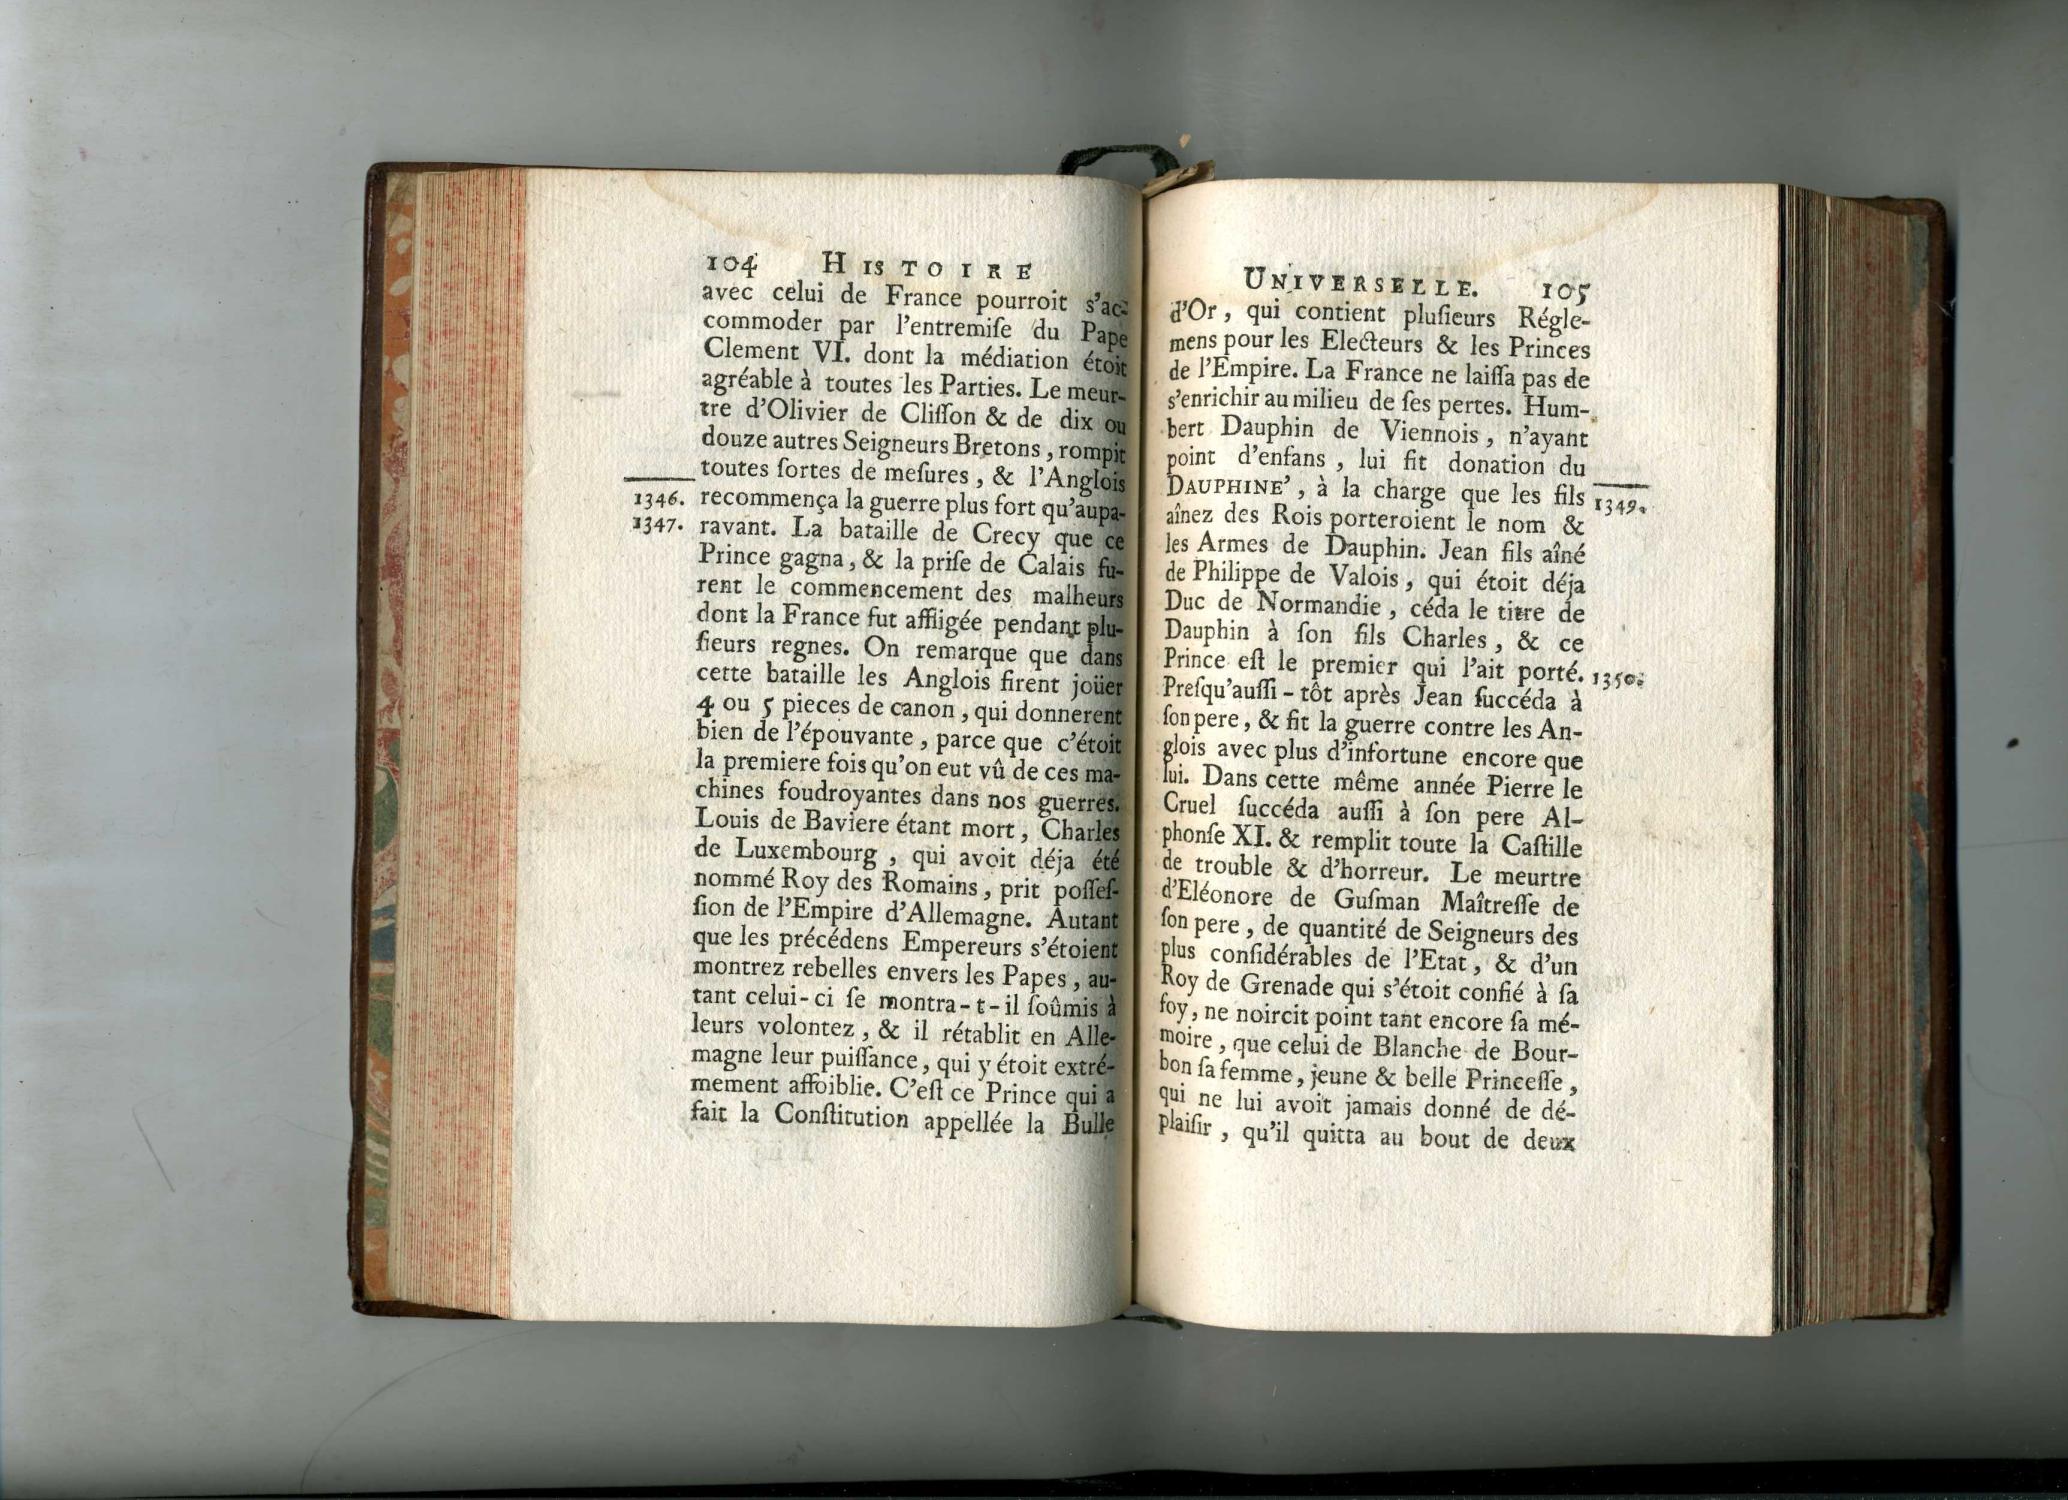 104 HISTOIRE
avec celui de France pourroit s'ac-
commoder par l'entremiſe du Pape
Clement VI. dont la médiation étoit
agréable à toutes les Parties. Le meur-
tre d'Olivier de Cliſſon & de dix ou
douze autres Seigneurs Bretons, rompit
toutes ſortes de meſures, & l'Anglois
1346. recommença la guerre plus fort qu'aupa-
1347. ravant. La bataille de Crecy que ce
Prince gagna, & la priſe de Calais fu-
rent le commencement des malheurs
dont la France fut affligée pendant plu-
ſieurs regnes. On remarque que dans
cette bataille les Anglois firent joüer
4 ou 5 pieces de canon, qui donnerent
bien de l'épouvante, parce que c'étoit
la premiere fois qu'on eut vû de ces ma-
chines foudroyantes dans nos guerres.
Louis de Baviere étant mort, Charles
de Luxembourg, qui avoit déja été
nommé Roy des Romains, prit poſſeſ-
ſion de l'Empire d'Allemagne. Autant
que les précédens Empereurs s'étoient
montrez rebelles envers les Papes, au-
tant celui-ci ſe montra-t-il ſoûmis à
leurs volontez, & il rétablit en Alle-
magne leur puiſſance, qui y étoit extré-
mement affoiblie. C'eſt ce Prince qui a
fait la Conſtitution appellée la Bulle
UNIVERSELLE. 105
d'Or, qui contient pluſieurs Régle-
mens pour les Electeurs & les Princes
de l'Empire. La France ne laiſſa pas de
s'enrichir au milieu de ſes pertes. Hum-
bert Dauphin de Viennois, n'ayant
point d'enfans, lui fit donation du
DAUPHINE', à la charge que les fils 1349.
aînez des Rois porteroient le nom &
les Armes de Dauphin. Jean fils aîné
de Philippe de Valois, qui étoit déja
Duc de Normandie, céda le titre de
Dauphin à ſon fils Charles, & ce
Prince eſt le premier qui l'ait porté. 1350.
Preſqu'auſſi-tôt après Jean ſuccéda à
ſon pere, & fit la guerre contre les An-
glois avec plus d'infortune encore que
lui. Dans cette même année Pierre le
Cruel ſuccéda auſſi à ſon pere Al-
phonſe XI. & remplit toute la Caſtille
de trouble & d'horreur. Le meurtre
d'Eléonore de Guſman Maîtreſſe de
ſon pere, de quantité de Seigneurs des
plus conſidérables de l'Etat, & d'un
Roy de Grenade qui s'étoit confié à ſa
foy, ne noircit point tant encore ſa mé-
moire, que celui de Blanche de Bour-
bon ſa femme, jeune & belle Princeſſe,
qui ne lui avoit jamais donné de dé-
plaiſir, qu'il quitta au bout de deux